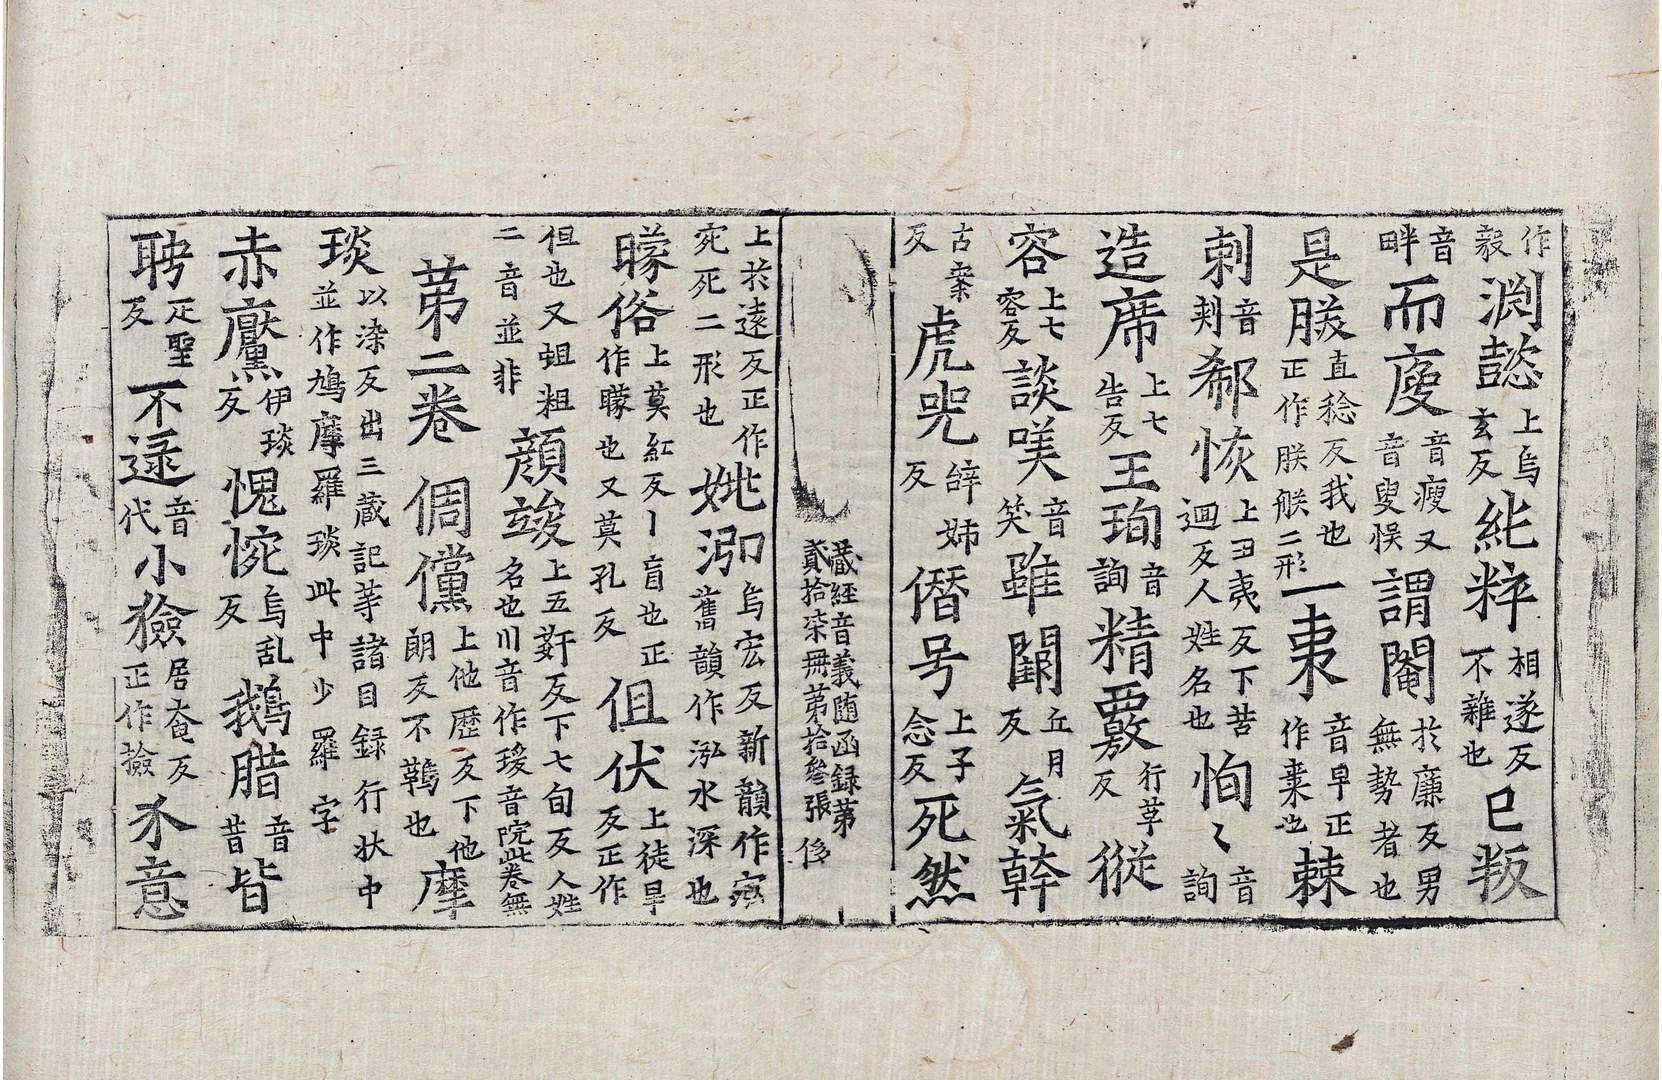 作毅淵懿上烏玄反純粹相遂反不雜也已叛
音畔而庱音瘦又音叟悮謂閹於廉反男無勢者也
是朕直稔反我也正作朕䑣二形一朿音早正作棗也棘
刺音刾郗恢上丑夷反下苦迴反人姓名也恂〻音詢
造席上七告反王珣音詢精覈行革反從
容上七容反談㗛音笑雖闕丘月反氣幹
古案反虎兕辝姊反僭号上子念反死然
藏經音義随函録第貳拾柒冊第拾叄張 侈
上於遠反正作宛死二形也姚泓烏宏反新韻作㳷舊韻作泓水深也
矇俗上莫紅反丨盲也正作矇也又莫孔反但伏上徒旱反正作
但也又蛆粗二音並非顔竣上五姧反下七旬反人姓名也川音作㻛音院此卷無
第二卷 倜儻上他歴反下他朗反不羈也摩
琰以染反出三蔵記等諸目録行状中並作鳩摩羅琰此中少羅字
赤黶伊琰反愧惋烏乱反鵝腊音昔皆
聘疋聖反不逯音代小獫居奄反正作撿本意